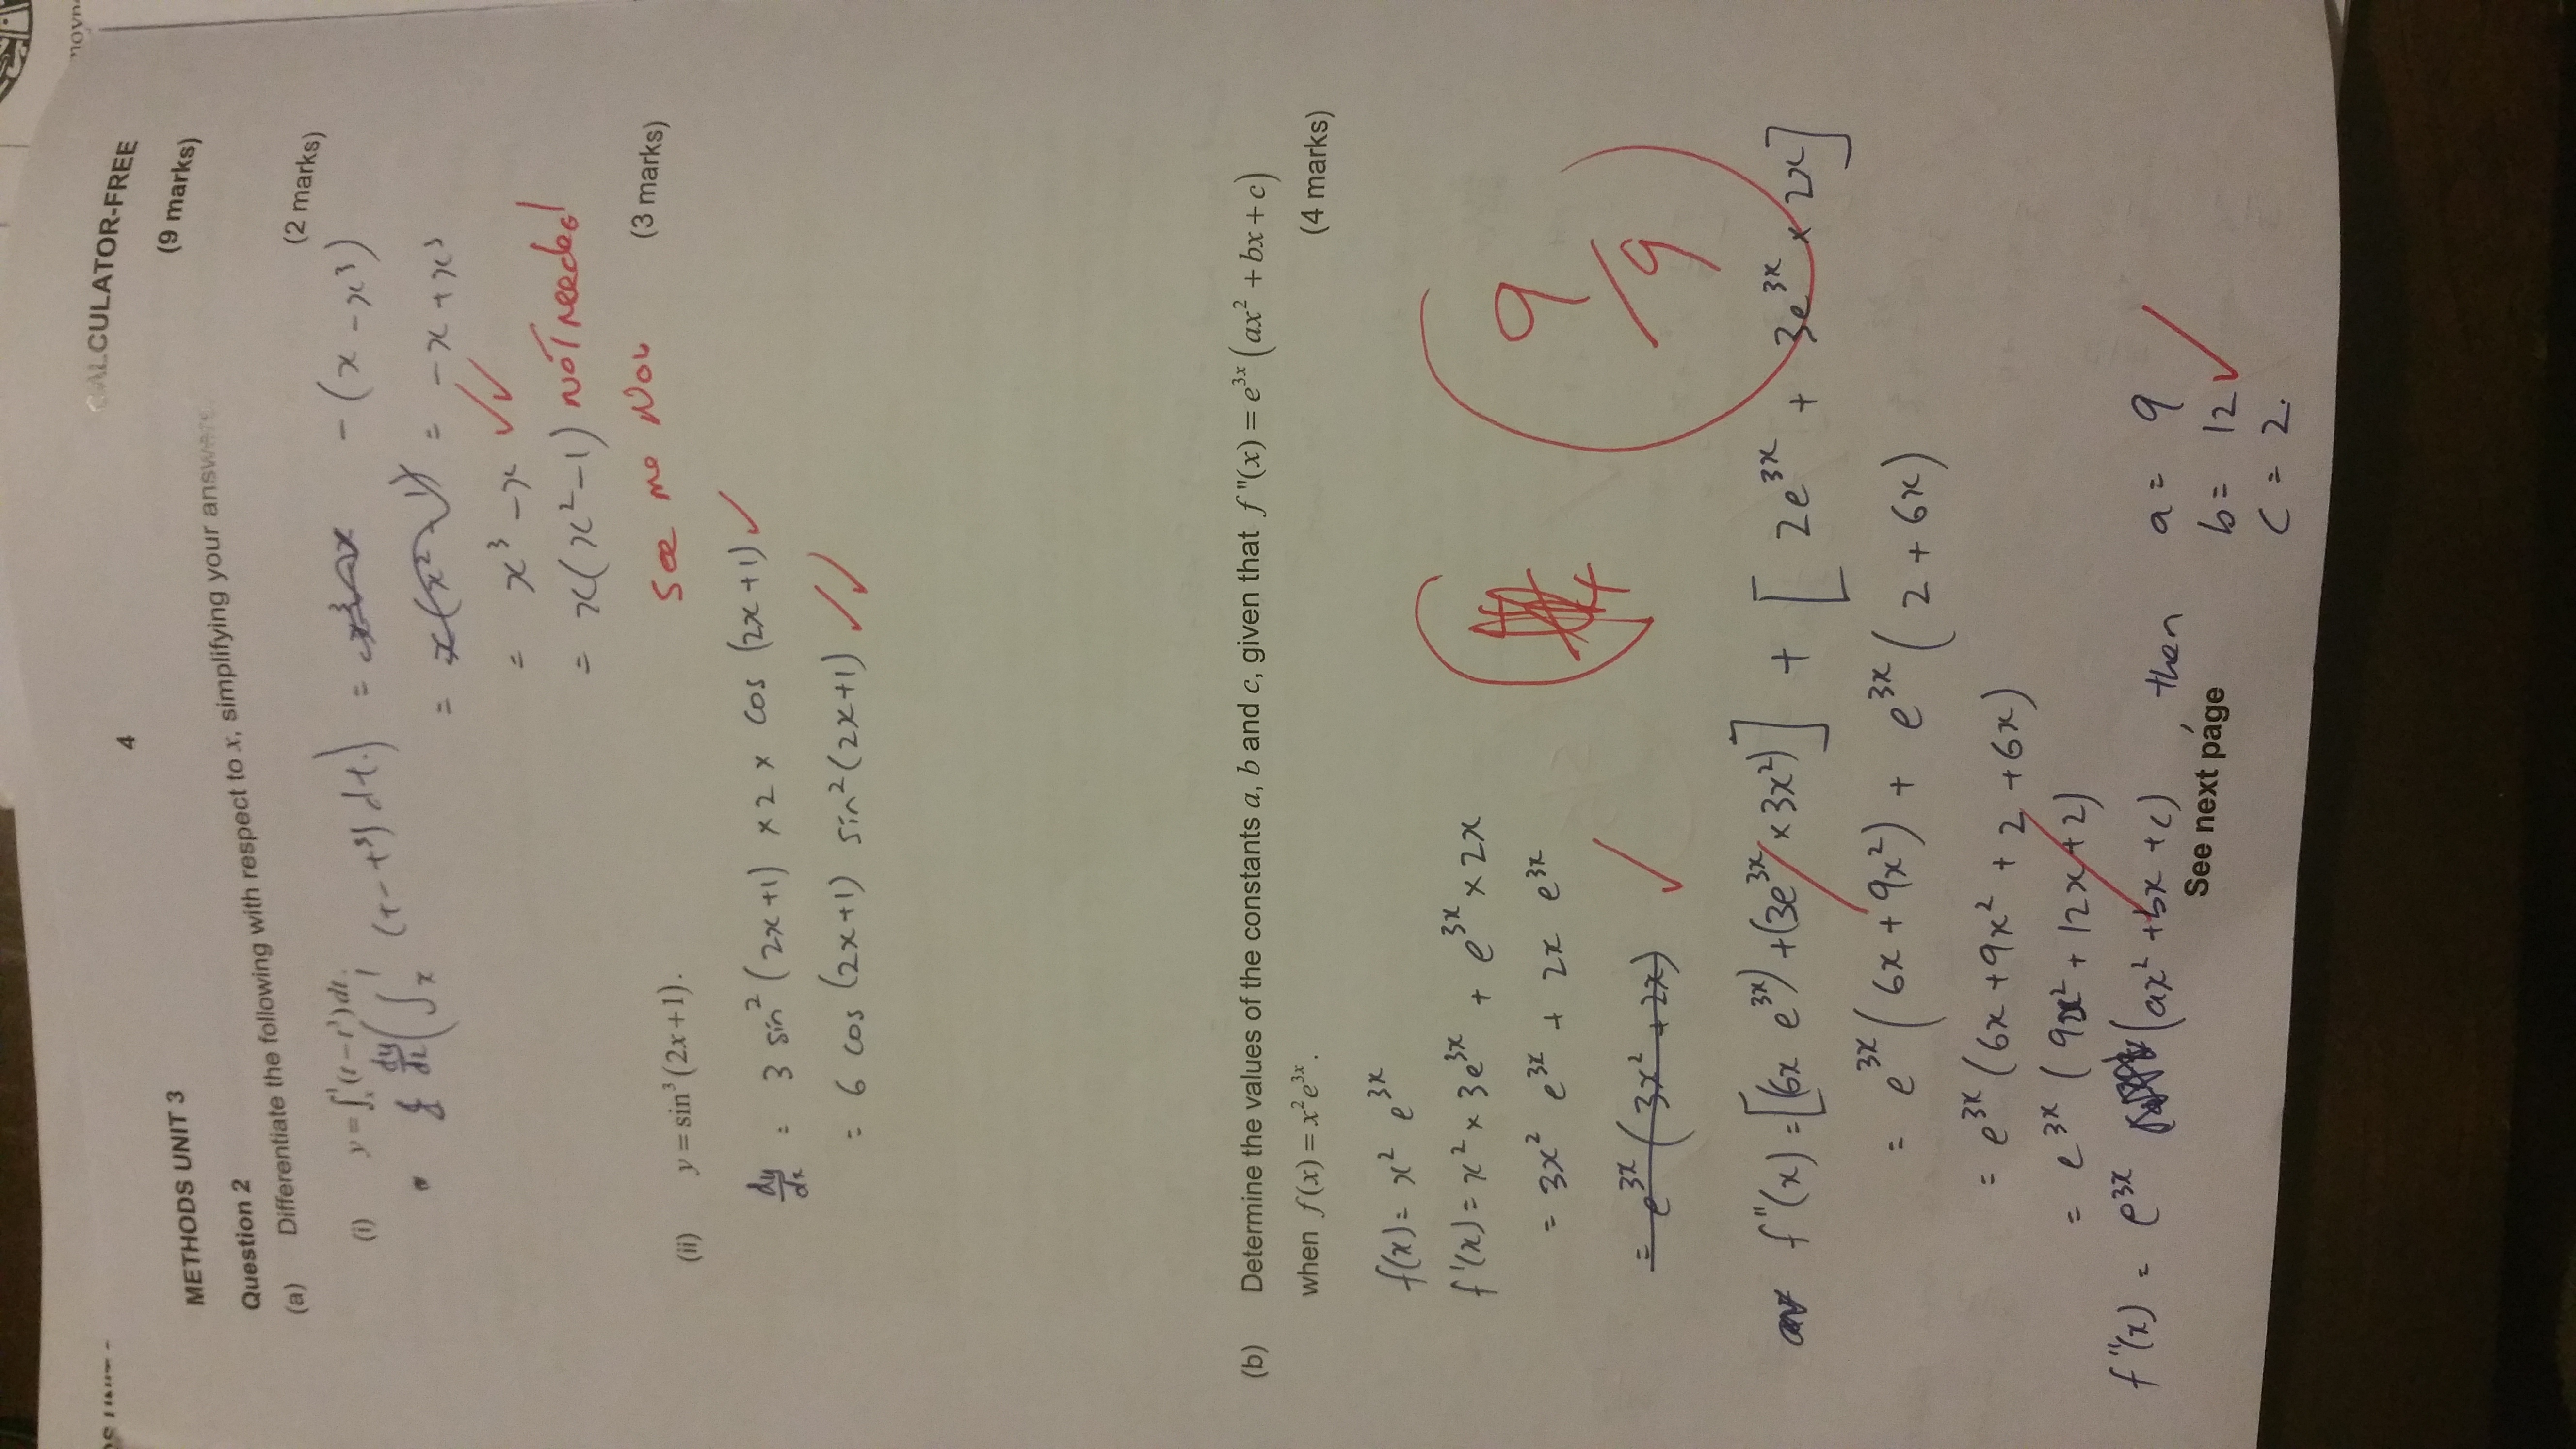 CALCULATOR-FREE
4
METHODS UNIT 3
(9 marks)
Question 2
(a) Differentiate the following with respect to x, simplifying your answers.
(2 marks)
(i) y = ∫ₓ¹ (t − t³) dt.
dy/dx (∫ₓ¹ (t − t³) dt.) = x³ − x − (x − x³)
= x(x² − 1) = −x + x³
= x³ − x ✓✓
= x(x² − 1) NOT needed
See me Now
(3 marks)
(ii) y = sin³(2x+1).
dy/dx = 3 sin² (2x+1) × 2 × cos (2x+1) ✓
= 6 cos (2x+1) sin² (2x+1) ✓✓
(b) Determine the values of the constants a, b and c, given that f "(x) = e³ˣ (ax² + bx + c)
when f(x) = x²e³ˣ. (4 marks)
f(x) = x² e³ˣ
f'(x) = x² × 3e³ˣ + e³ˣ × 2x
= 3x² e³ˣ + 2x e³ˣ
= e³ˣ (3x² + 2x) ✓
9/9
f"(x) = [(6x e³ˣ) + (3e³ˣ × 3x²)] + [2e³ˣ + 3e³ˣ × 2x]
= e³ˣ (6x + 9x²) + e³ˣ (2 + 6x)
= e³ˣ (6x + 9x² + 2 + 6x)
= e³ˣ (9x² + 12x + 2)
f"(x) = e³ˣ (ax² + bx + c), then a = 9
b = 12 ✓
c = 2.
See next page